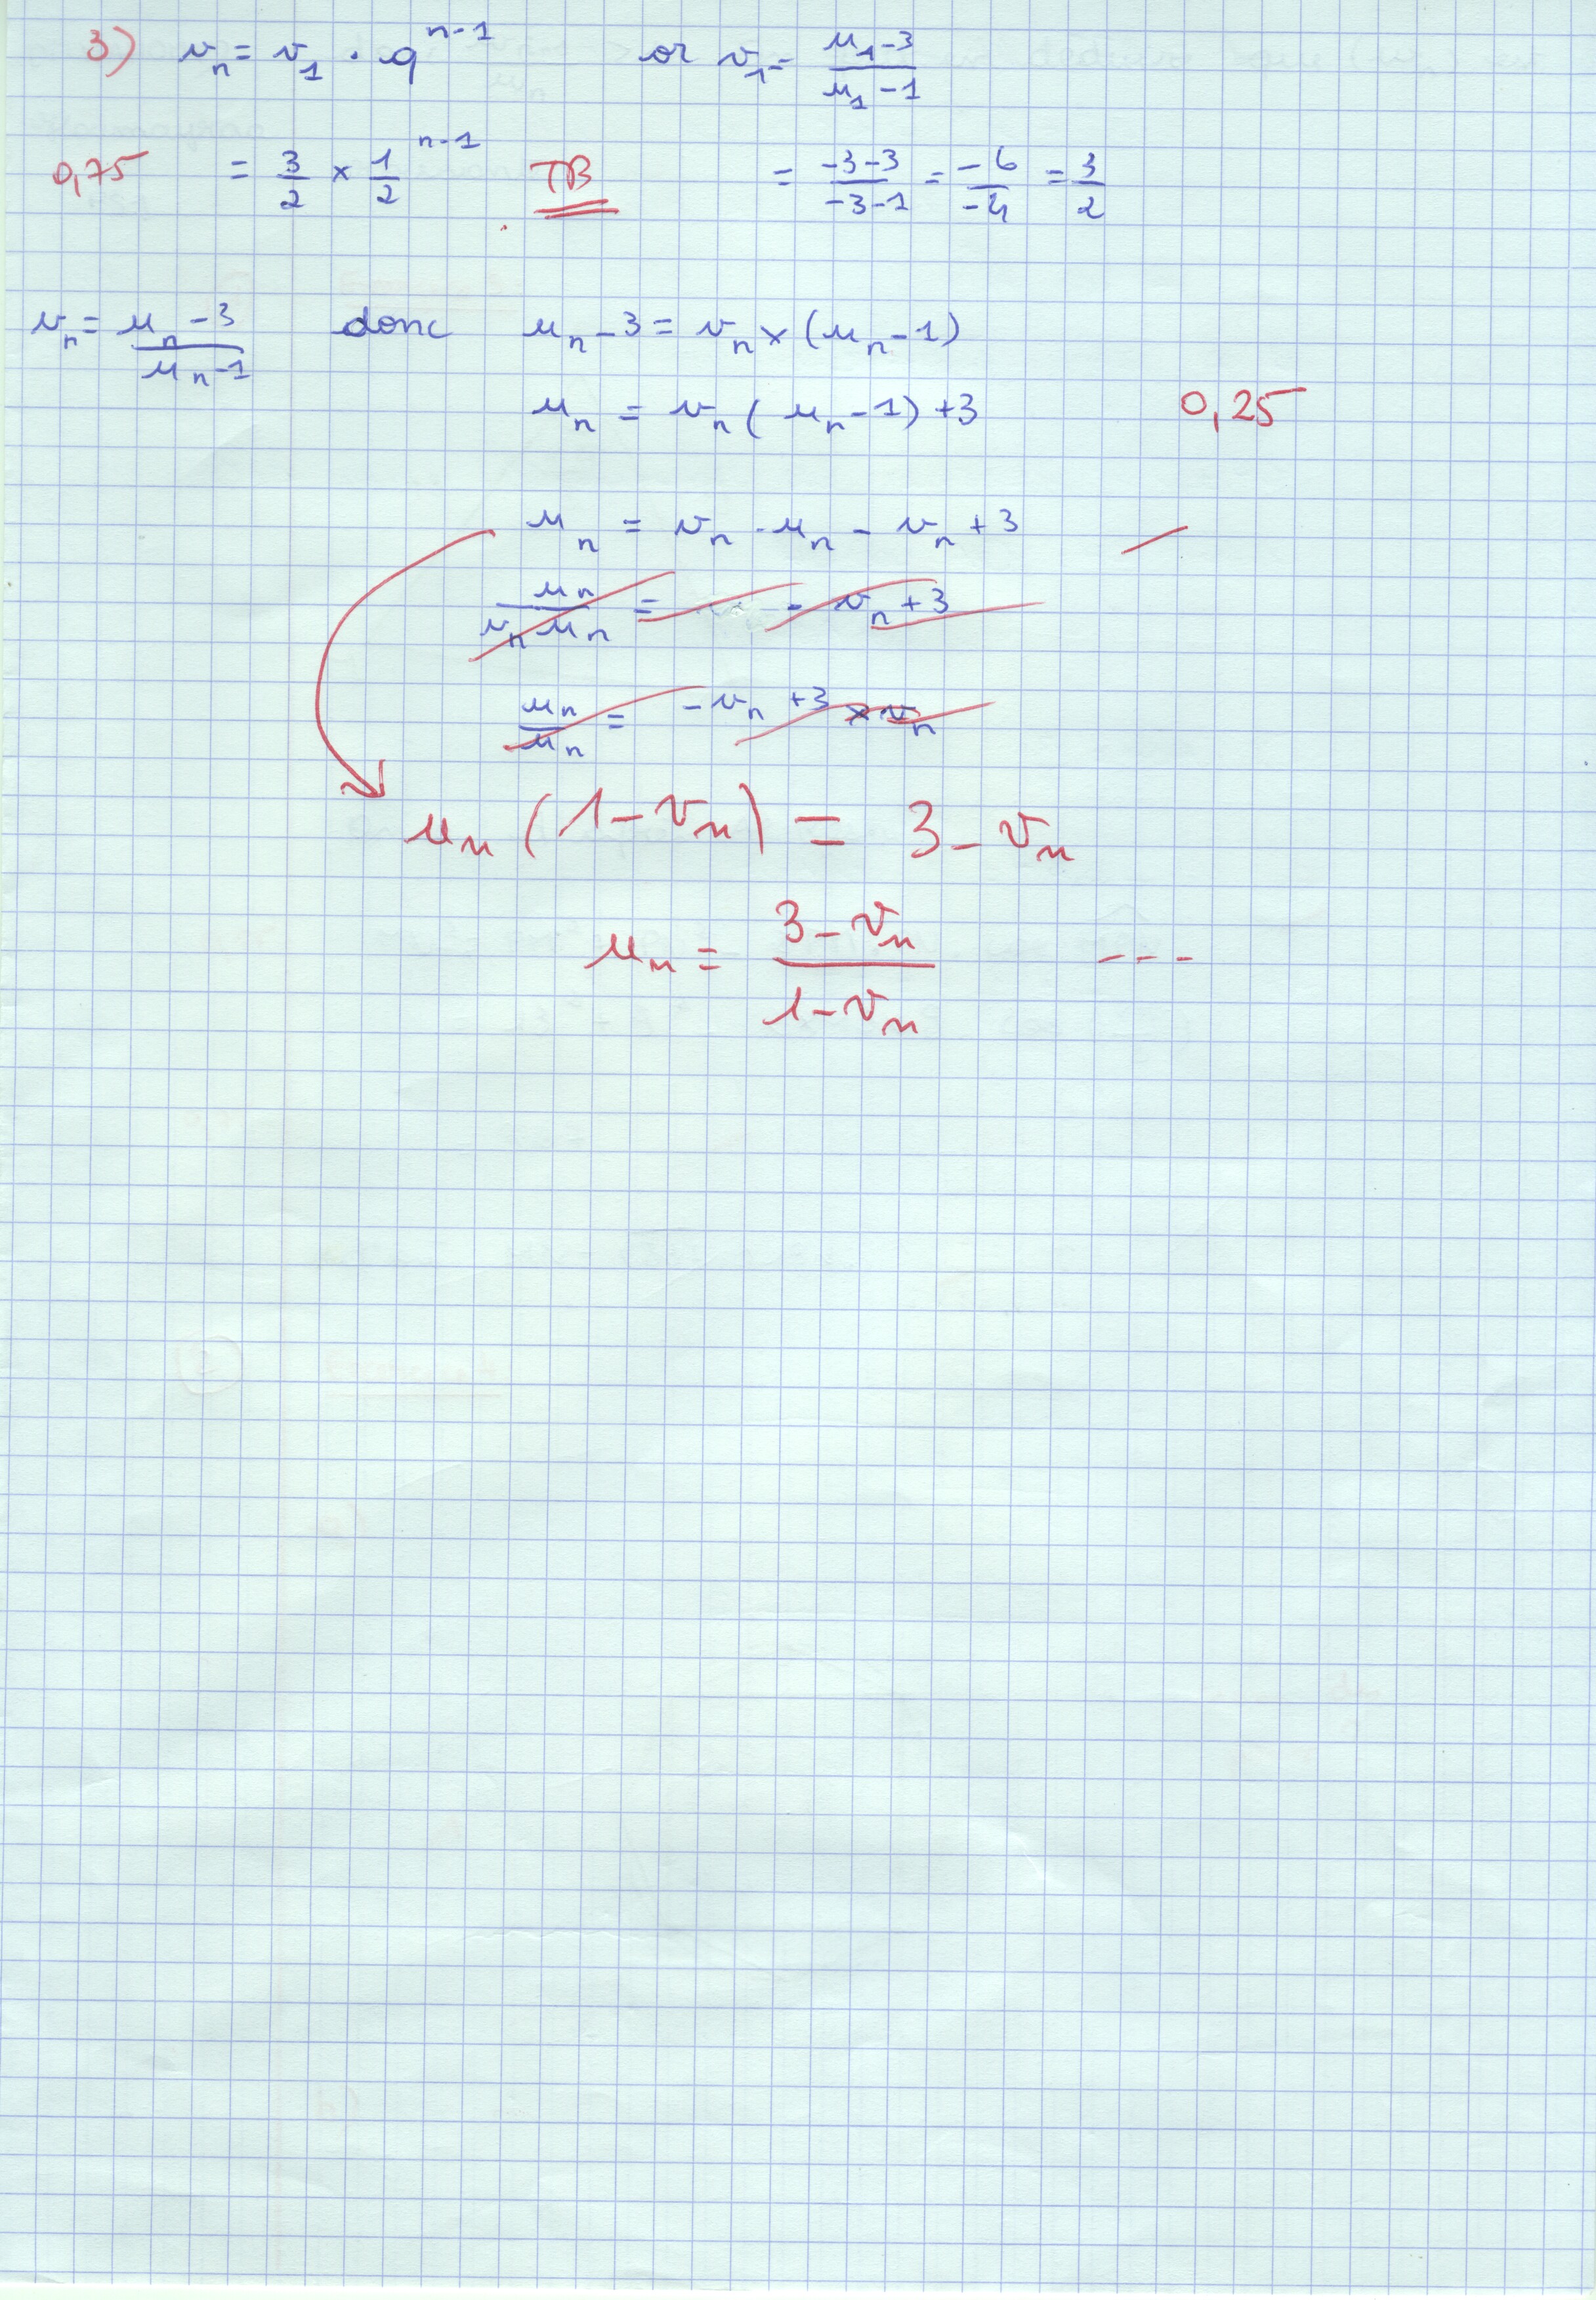 3) vₙ = v₁ · qⁿ⁻¹ or v₁ = (u₁-3)/(u₁-1)
0,75 = 3/2 × 1/2 ⁿ⁻¹ TB = (-3-3)/(-3-1) = -6/-4 = 3/2
vₙ = (uₙ-3)/(uₙ-1) donc uₙ-3 = vₙ × (uₙ-1)
uₙ = vₙ(uₙ-1)+3 0,25
uₙ = vₙ · uₙ - vₙ + 3
uₙ/(vₙ uₙ) = - vₙ + 3
uₙ/uₙ = -vₙ + 3 × vₙ
uₙ (1-vₙ) = 3-vₙ
uₙ = (3-vₙ)/(1-vₙ) ---